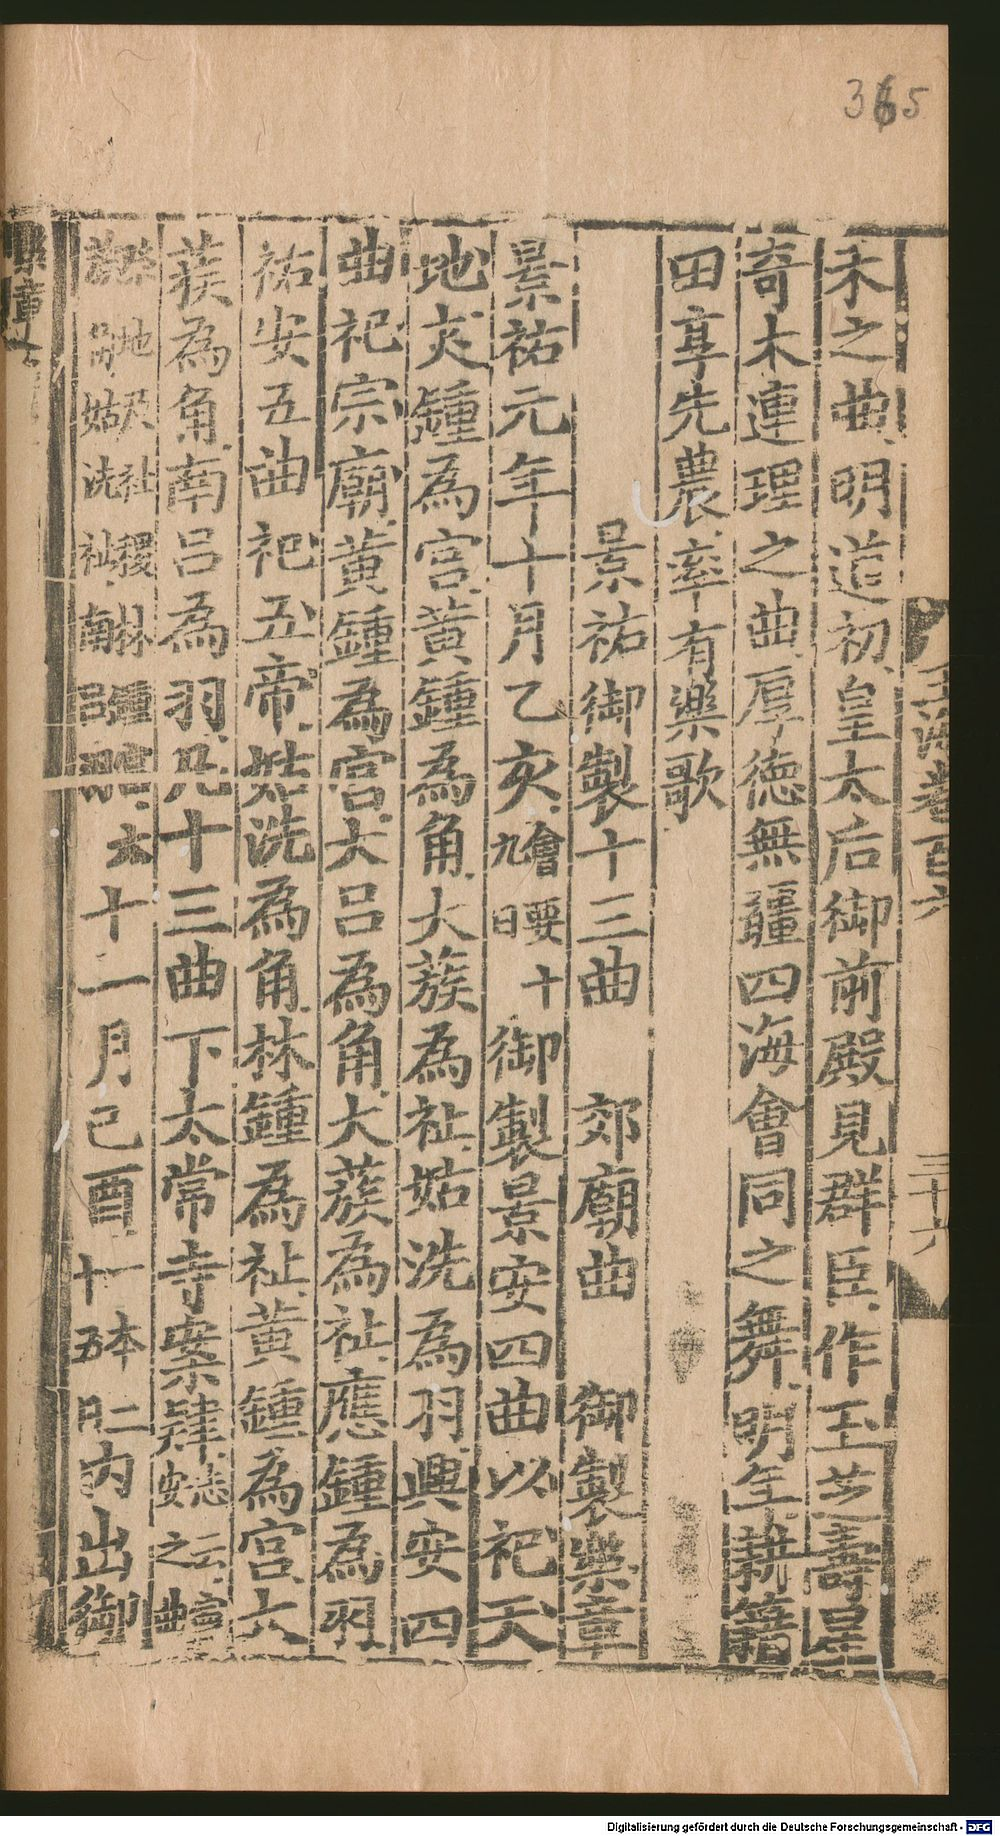 365
玉海卷百六
三十六
禾之曲明道初皇太后御前殿見群臣作玉芝壽星
奇木連理之曲厚德無疆四海會同之舞明年耕籍
田享先農率有樂歌
景祐御製十三曲 郊廟曲 御製樂章
景祐元年十月乙亥會要十九日御製景安四曲以祀天
地夾鍾為宮黃鍾為角大蔟為祉姑洗為羽興安四
曲祀宗廟黃鍾為宮大呂為角大蔟為祉應鍾為羽
祐安五曲祀五帝姑洗為角林鍾為祉黃鍾為宮大
蔟為角南呂為羽凡十三曲下太常寺案肄志云言安之曲
祭地及社稷林鍾宮蔟角姑洗祉南呂羽 十一月己酉一本十二月五內出御
樂章
Digitalisierung gefördert durch die Deutsche Forschungsgemeinschaft - DFG